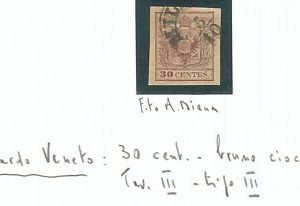 MIL
30 CENTES.
F.to A. Diena
ardo Veneto : 30 cent. - bruno cioc
Tav. III - tipo III